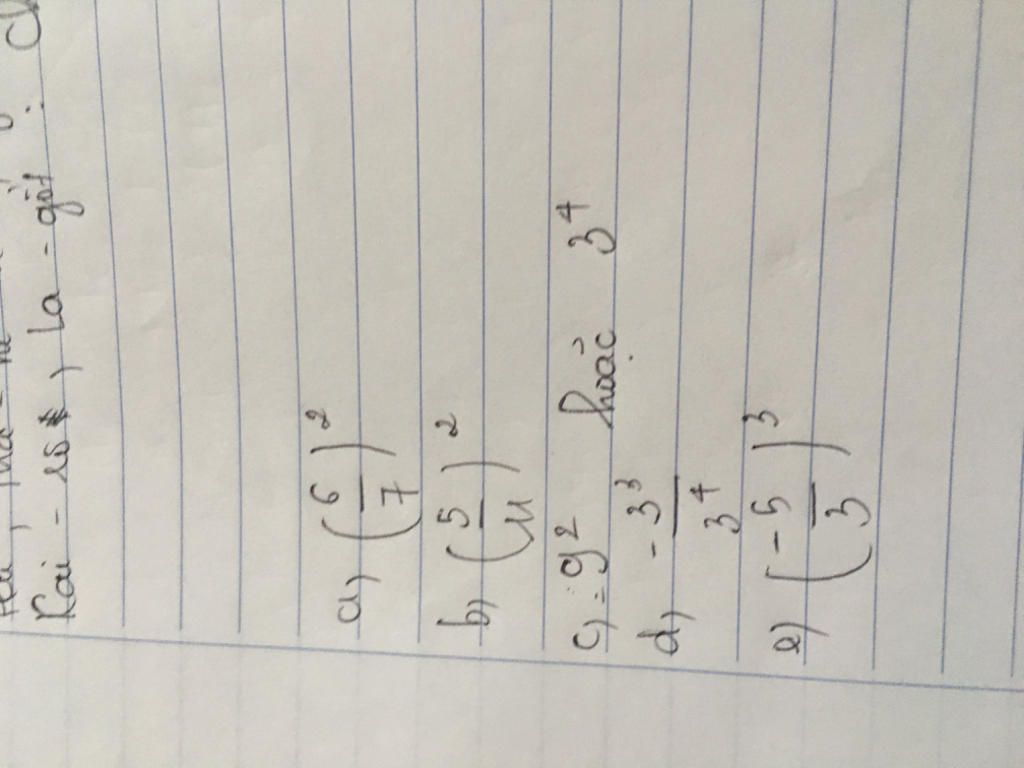 Rai - nơ, La - gốt
a, (6/7)²
b, (5/11)²
c, = 9² hoặc 3⁴
d, -3³/3⁴
e) (-5/3)³